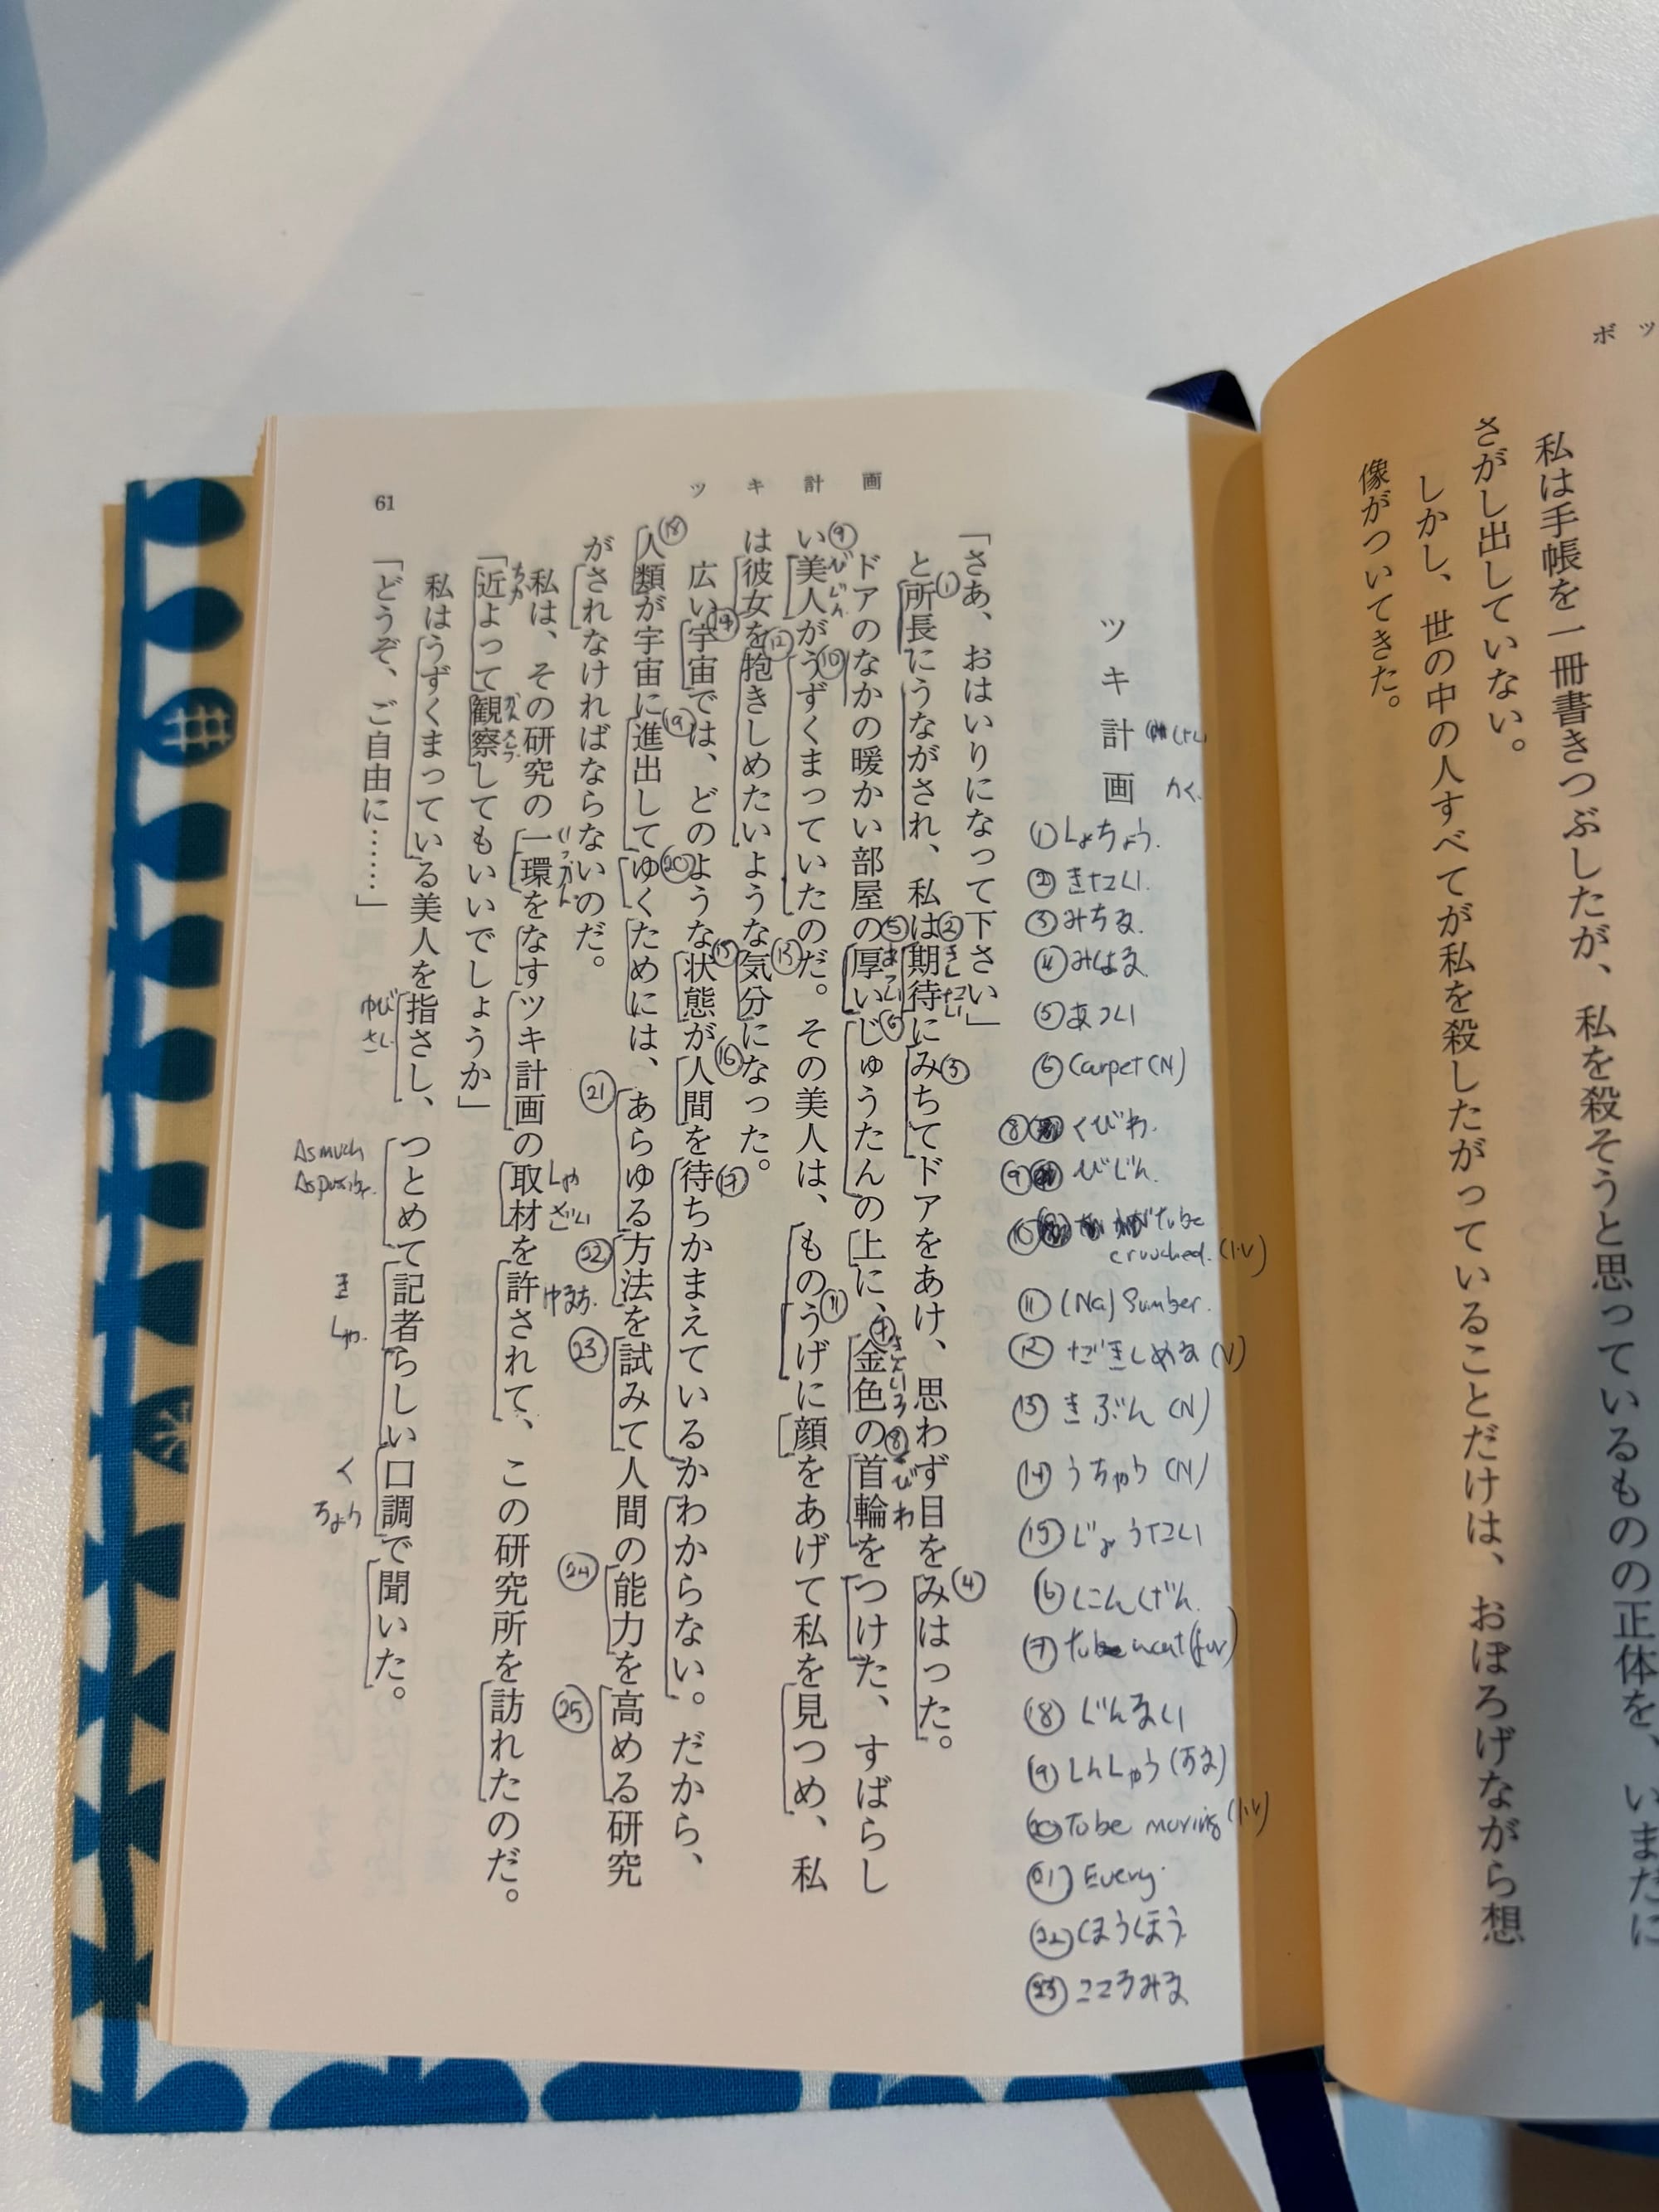 ボッ
私は手帳を一冊書きつぶしたが、私を殺そうと思っているものの正体を、いまだに
さがし出していない。
しかし、世の中の人すべてが私を殺したがっていることだけは、おぼろげながら想
像がついてきた。
ツキ計画
61
ツキ計画
けい
かく
①しょちょう.
②きたい.
③みちる.
④みはる
⑤あつい
⑥Carpet(N)
⑧くびわ.
⑨びじん.
⑩ to be
crouched. (I.V)
⑪(Na) Sumber.
⑫だきしめる(V)
⑬きぶん(N)
⑭うちゅう(N)
⑮じょうたい
⑯にんげん.
⑰ to wait (for)
⑱じんるい
⑲しんしゅう(する)
⑳To be moving (I.V)
㉑Every.
㉒ほうほう
㉓こころみる
「さあ、おはいりになって下さい」
と所長にうながされ、私は期待にみちてドアをあけ、思わず目をみはった。
①
②
きたい
③
④
ドアのなかの暖かい部屋の厚いじゅうたんの上に、金色の首輪をつけた、すばらし
⑤
あつい
⑥
⑦
きんいろ
⑧
くびわ
い美人がうずくまっていたのだ。その美人は、ものうげに顔をあげて私を見つめ、私
⑨
びじん
⑩
⑪
は彼女を抱きしめたいような気分になった。
⑫
⑬
広い宇宙では、どのような状態が人間を待ちかまえているかわからない。だから、
⑭
⑮
⑯
⑰
人類が宇宙に進出してゆくためには、あらゆる方法を試みて人間の能力を高める研究
⑱
⑲
⑳
㉑
㉒
㉓
㉔
㉕
がされなければならないのだ。
私は、その研究の一環をなすツキ計画の取材を許されて、この研究所を訪れたのだ。
いっかん
しゅざい
ゆるち.
「近よって観察してもいいでしょうか」
ちか
かんさつ
私はうずくまっている美人を指さし、つとめて記者らしい口調で聞いた。
ゆび
さし
As much
As possible.
き
しゃ.
く
ちょう
「どうぞ、ご自由に……」